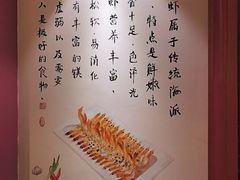 虾属于传统海派
，特点是鲜嫩味
管十足，色泽光
虾营养丰富，
松软，易消化
有丰富的镁
虚弱以及需要
人是极好的食物。